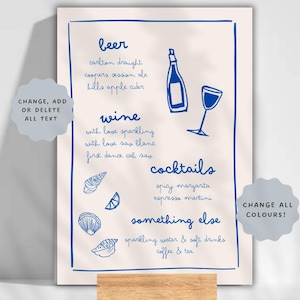 beer
carlton draught
coopers session ale
hills apple cider
CHANGE, ADD
OR DELETE
ALL TEXT
wine
with love sparkling
with love sau blanc
first dance cab sav
cocktails
spicy margarita
espresso martini
CHANGE ALL
COLOURS!
something else
sparkling water & soft drinks
coffee & tea